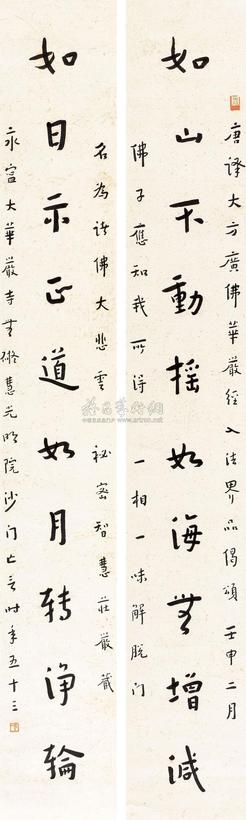 唐譯大方廣佛華嚴經入法界品偈頌 壬申二月
如山不動搖如海無增減
佛子應知我所得 一相一味解脫門
名為諸佛大悲雲 祕密智慧莊嚴藏
如日示正道如月轉淨輪
永寧大華嚴寺無礙慧光明院沙門亡言時年五十三
雅昌藝術網
www.artron.net